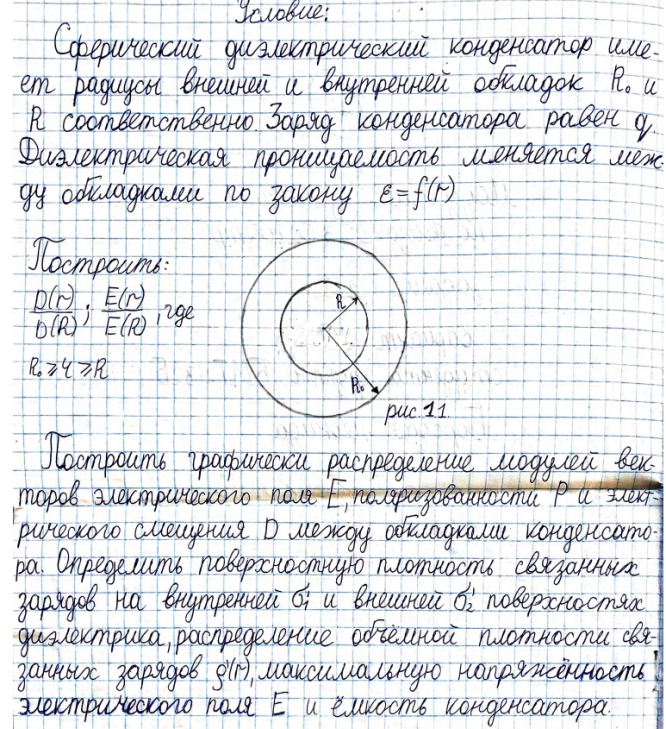 Условие:
Сферический диэлектрический конденсатор име-
ет радиусы внешней и внутренней обкладок R₀ и
R соответственно. Заряд конденсатора равен q.
Диэлектрическая проницаемость меняется меж-
ду обкладками по закону ε=f(r)
Построить:
D(r)/D(R); E(r)/E(R), где
R₀≥r≥R
R
R₀
рис.1.1.
Построить графически распределение модулей век-
торов электрического поля E, поляризованности P и элект-
рического смещения D между обкладками конденсато-
ра. Определить поверхностную плотность связанных
зарядов на внутренней σ₁' и внешней σ₂' поверхностях
диэлектрика, распределение объёмной плотности свя-
занных зарядов ρ'(r), максимальную напряжённость
электрического поля E и ёмкость конденсатора.